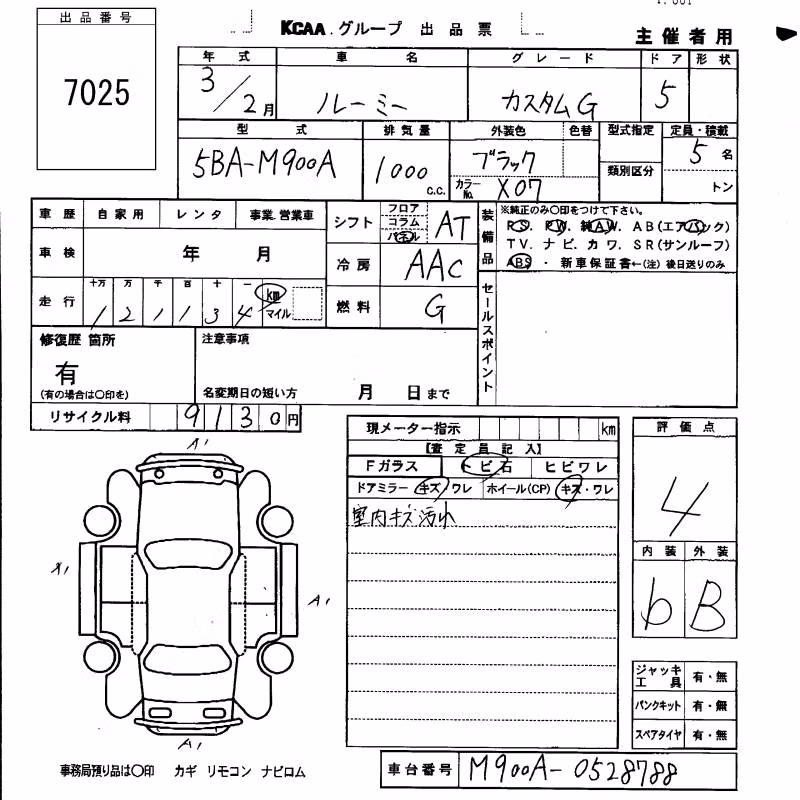 出品番号
7025
KCAA.グループ 出品票
主催者用
年式 車名 グレード ドア 形状
3/2月 ルーミー カスタムG 5
型式 排気量 外装色 色替 型式指定 定員・積載
5BA-M900A 1000 C.C. ブラック 5名
類別区分
カラーNo. X07 トン
車歴 自家用 レンタ 事業.営業車
シフト フロア コラム パネル AT
装備品 ※純正のみ〇印をつけて下さい。
PS. PW. 純AW. AB(エアバック)
TV. ナビ. カワ. SR(サンルーフ)
ABS ・ 新車保証書←(注) 後日送りのみ
車検 年 月
冷房 AAC
走行 十万 万 千 百 十 一 km マイル
1 2 1 1 3 4
燃料 G
セールスポイント
修復歴 箇所
有
(有の場合は〇印を)
注意事項
名変期日の短い方 月 日まで
リサイクル料 9130円
現メーター指示 km
【査定員記入】
Fガラス トビ石 ヒビワレ
ドアミラー キズ・ワレ ホイール(CP) キズ・ワレ
室内キズ汚れ
評価点
4
内装 外装
b B
ジャッキ工具 有・無
パンクキット 有・無
スペアタイヤ 有・無
A1
X1
A1
A1
事務局預り品は〇印 カギ リモコン ナビロム
車台番号 M900A-0528788